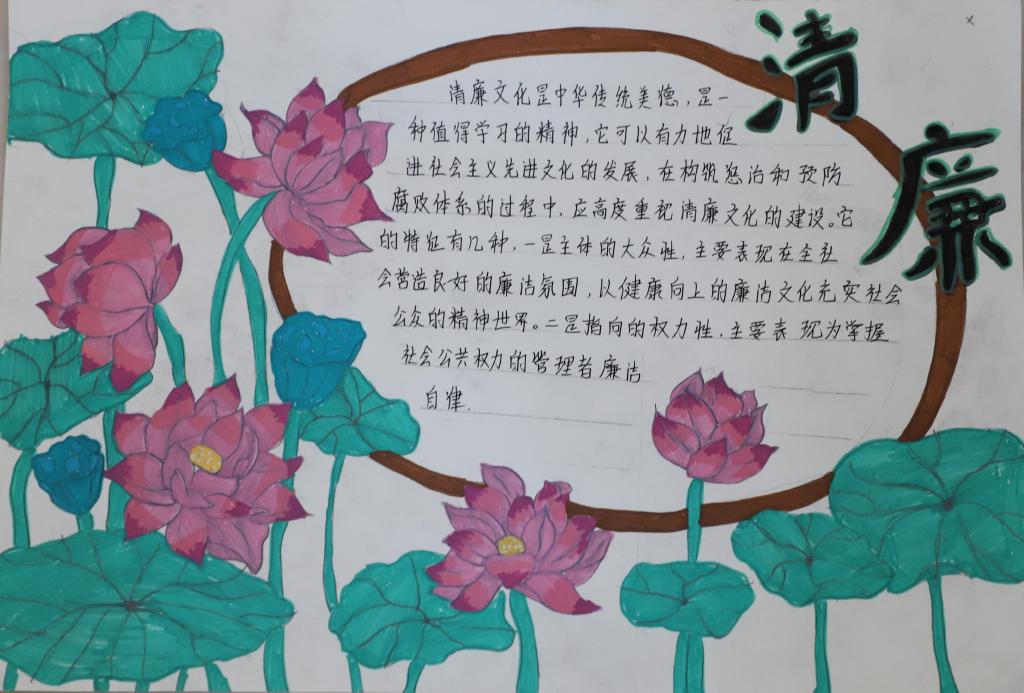 清廉
清廉文化是中华传统美德,是一
种值得学习的精神,它可以有力地促
进社会主义先进文化的发展,在构筑惩治和预防
腐败体系的过程中,应高度重视清廉文化的建设。它
的特征有几种,一是主体的大众性,主要表现在全社
会营造良好的廉洁氛围,以健康向上的廉洁文化充实社会
公众的精神世界。二是指向的权力性,主要表现为掌握
社会公共权力的管理者廉洁
自律.